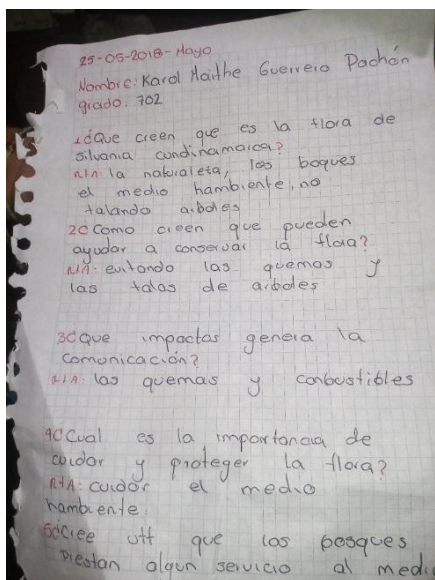 25-05-2018-Mayo
Nombre: Karol Maithe Guerrero Pachón
grado: 702
1¿Que creen que es la flora de
silvania cundinamarca?
R/A: la naturaleta, los boques
el medio hambiente, no
talando arboles
2¿Como creen que pueden
ayudar a conservar la flora?
R/A: evitando las quemas y
las talas de arboles
3¿que impactos genera la
comunicación?
R/A: las quemas y conbustibles
4¿Cual es la importancia de
cuidar y proteger la flora?
RtA: cuidar el medio
hambiente
5¿Cree utt que los bosques
Prestan algun servicio al medi